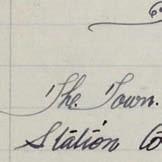 The Town.
Station